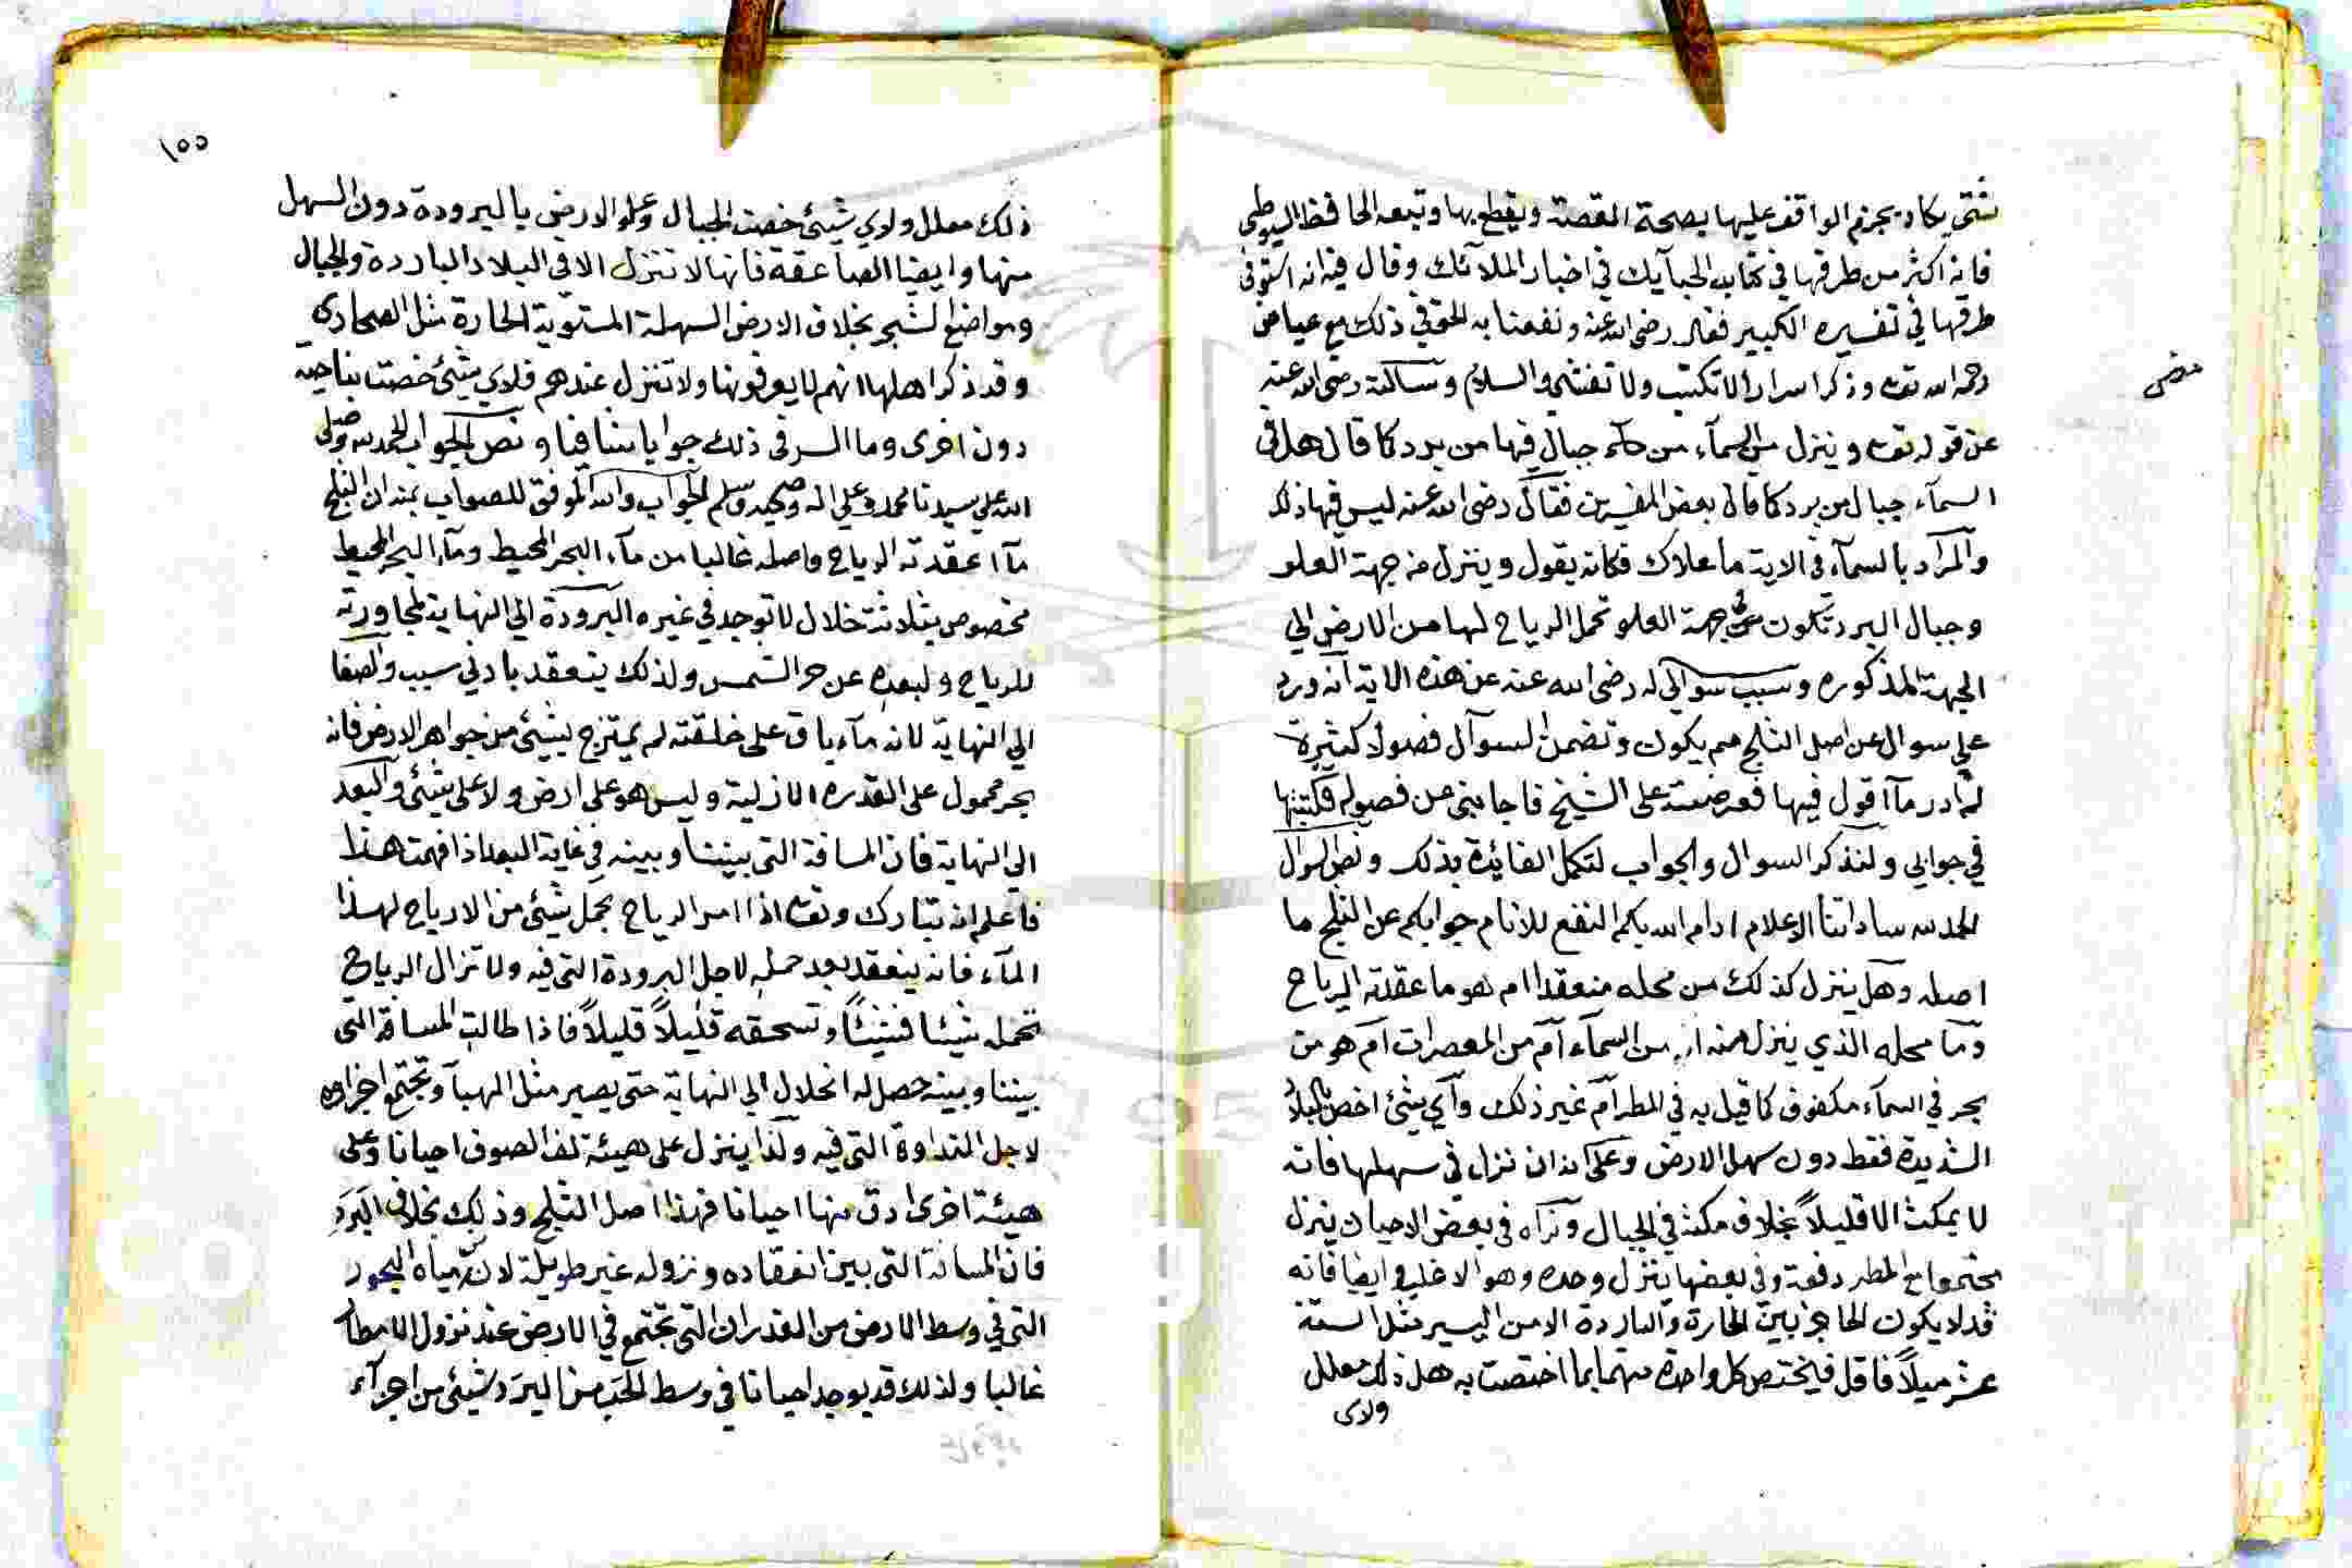 شتى يكاد يجزم الواقف عليها بصحة القصة ويقطع بها وتبعه الحافظ السيوطي
فانه اكثر من طرقها في كتاب الحبآيك في اخبار الملآئك وقال فيه انه استوفى
طرقها في تفسيره الكبير فقال رضي الله عنه ونفعنا به الحق في ذلك مع عياض
رحمه الله تعه وذكر اسرارا لا تكتب ولا تفشى والسلام وسالته رضي الله عنه
مضى
عن قوله تعه وينزل من السمآء من جبال فيها من برد كما قال هل في
السمآء جبال من برد كما قال بعض المفسرين فقال رضي الله عنه ليس فيها ذلك
والمراد بالسمآء في الاية ما علاك فكانه يقول وينزل من جهة العلو
وجبال البرد تكون في جهة العلو تحمل الرياح لها من الارض الي
الجهة المذكوره وسبب سوالي له رضي الله عنه عن هذه الاية انه ورد
علي سوال عن اصل الثلج مم يكون وتضمن السوآل فصولا كثيرة
لم ادر مآ اقول فيها فعرضته على الشيخ فاجابني عن فصوله فكتبتها
في جوابي ولنذكر السوال والجواب لتكمل الفائدة بذلك ونص السوال
الحمد لله ساداتنا الاعلام ادام الله بكم النفع للانام جوابكم عن الثلج ما
اصله وهل ينزل كذلك من محله منعقدا ام هو ما عقدته الرياح
وما محله الذي ينزل منه ا من السمآء ام من المعصرات ام هو من
بحر في السمآء مكفوف كما قيل به في المطر ام غير ذلك واي شيئ اختص بالبلاد
الشديدة فقط دون سهل الارض وعلى انه ان نزل في سهلها فانه
لا يمكث الا قليلاً بخلاف مكثه في الجبال ونراه في بعض الاحيان ينزل
مجتمعا مع المطر دفعة وفي بعضها ينزل وحده وهو الاغلب وايضا فانه
قد لا يكون الحاجز بين الحارة والباردة الا من اليسير مثل الستة
عشر ميلاً فاقل فيختص كل واحدة منهما بما اختصت به هل ذلك معلل
ولاى
١٥٥
ذلك معلل ولاي شيئ خصت الجبال وعلو الارض بالبرودة دون السهل
منها وايضا الصاعقة فانها لا تنزل الا في البلاد الباردة والجبال
ومواضع الشجر بخلاف الارض السهلة المستوية الحارة مثل الصحارى
وقد ذكر اهلها انهم لا يعرفونها ولا تنزل عندهم فلاي شيئ خصت بناحية
دون اخرى وما السر في ذلك جوابا شافيا ونص الجواب الحمد لله وصلى
الله علي سيدنا محمد وعلي اله وصحبه وسلم الجواب والله الموفق للصواب بمنه ان الثلج
مآ اعقدته الرياح واصله غالبا من مآء البحر المحيط ومآء البحر المحيط
مخصوص بثلاثة خلال لا توجد في غيره البرودة الي النهاية لمجاورته
للرياح ولبعده عن حر الشمس ولذلك ينعقد بادني سبب والصفا
الي النهاية لانه مآء باق على خلقته لم يمتزج بشيئ من جواهر الارض فانه
بحر محمول على القدرة الازلية وليس هو على ارض ولا على شيئ والبعد
الي النهاية فان المسافة التي بيننا وبينه في غاية البعد اذا فهمت هذا
فاعلم انه تبارك وتعه اذا امر الرياح بحمل شيئ من الارياح لهذا
المآء فانه ينعقد بعد حمله لاجل البرودة التي فيه ولا تزال الرياح
تحمله شيئا فشيئاً وتسحقه قليلاً قليلاً فاذا طالت المسافة التي
بيننا وبينه حصل له انحلال الي النهاية حتى يصير مثل الهبآ وتجتمع اجزاوه
لاجل النداوة التي فيه ولذا ينزل على هيئة لف الصوف احيانا وعلى
هيئة اخرى ادق منها احيانا فهذا اصل الثلج وذلك بخلاف البَرَد
فان المسافة التي بين انعقاده ونزوله غير طويلة لانه من مياه البحور
التي في وسط الارض من الغدران التي تجتمع في الارض عند نزول الامطار
غالبا ولذلك قد يوجد احيانا في وسط الحَب من البَرَد شيئ من اجزآء